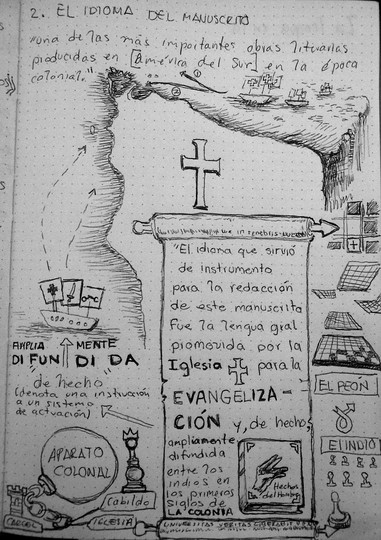 2. EL IDIOMA DEL MANUSCRITO
"una de las más importantes obras literarias
producidas en [América del Sur] en la época
colonial."
1
2
"El idioma que sirvió
de instrumento
para la redacción
de este manuscrito
fue la lengua gral
promovida por la
Iglesia para la
EVANGELIZA-
CIÓN y, de hecho,
ampliamente
difundida
entre los
indios en
los primeros
siglos de
LA COLONIA
AMPLIA MENTE
DIFUN DI DA
de hecho
(denota una instrucción
a un sistema
de actuación)
APARATO
COLONIAL
Cabildo
CARCEL
IGLESIA
Hechos
del Hombre
EL PEÓN
EL INDIO
UNIVERSITAS VERITAS